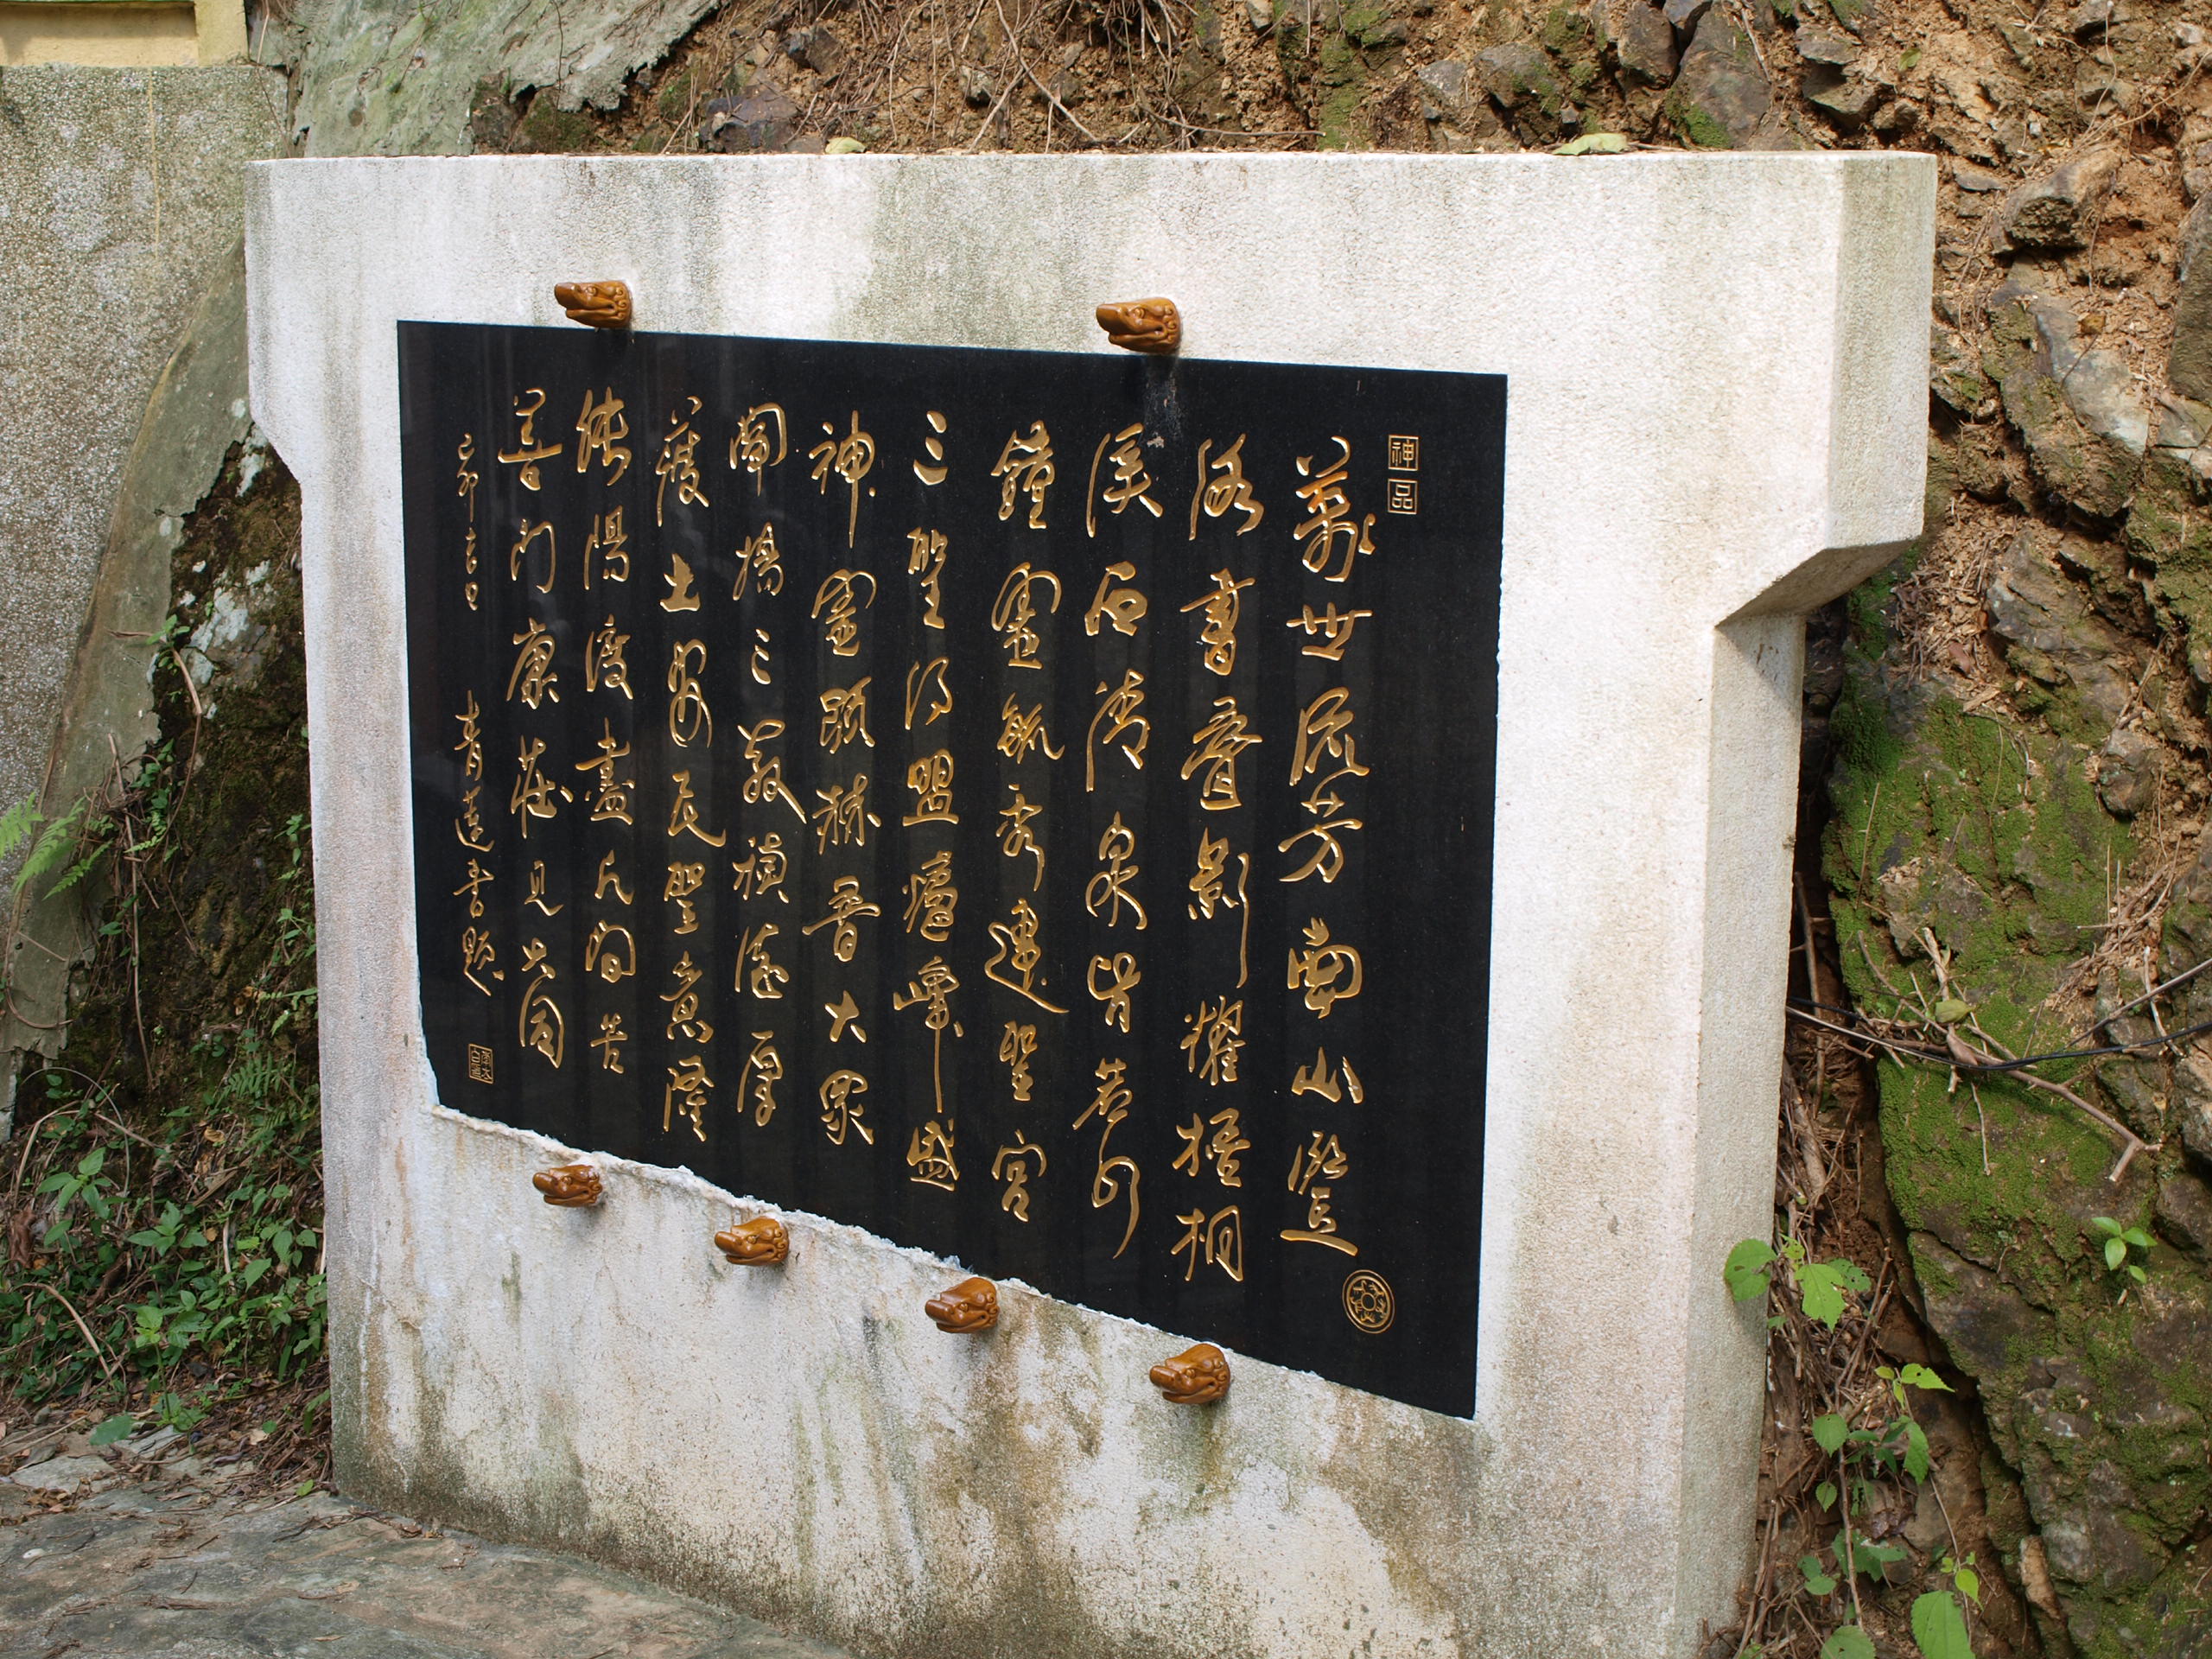 神品
萬世流芳南山
洛書疊影耀梧桐
溪石清泉皆若
鐘靈毓秀建聖宮
三聖得盟爐峰盛
神靈顯赫普大眾
闡揚三教禎德厚
護土安民聖意隆
純陽渡盡凡間苦
普門康莊見大同
己卯吉日 青書題